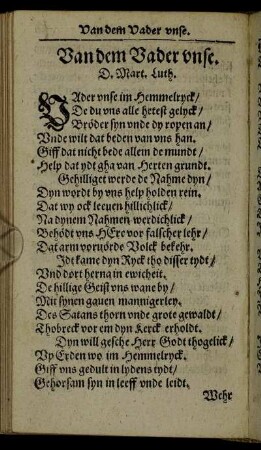 Van dem Vader vnse.
Van dem Vader vnse.
D. Mart. Luth.
VAder vnse im Hemmelryck/
De du vns alle hetest gelyck/
Bröder syn vnde dy ropen an/
Vnde wilt dat beden van vns han.
Giff dat nicht bede allein de mundt/
Help dat ydt gha van Herten grundt.
Gehilliget werde de Nahme dyn/
Dyn wordt by vns help holden rein.
Dat wy ock leeuen hillichlick/
Na dynem Nahmen werdichlick/
Behödt vns HEre vor falscher lehr/
Dat arm vorförde Volck bekehr.
Idt kame dyn Ryck tho disser tydt/
Vnd dort herna in ewicheit.
De hillige Geist vns wane by/
Mit synen gauen mannigerley.
Des Satans thorn vnde grote gewaldt/
Thobreck vor em dyn Kerck erholdt.
Dyn will gesche Herr Godt thogelick/
Vp Erden wo im Hemmelryck.
Giff vns gedult in lydens tydt/
Gehorsam syn in leeff vnde leidt.
Wehr